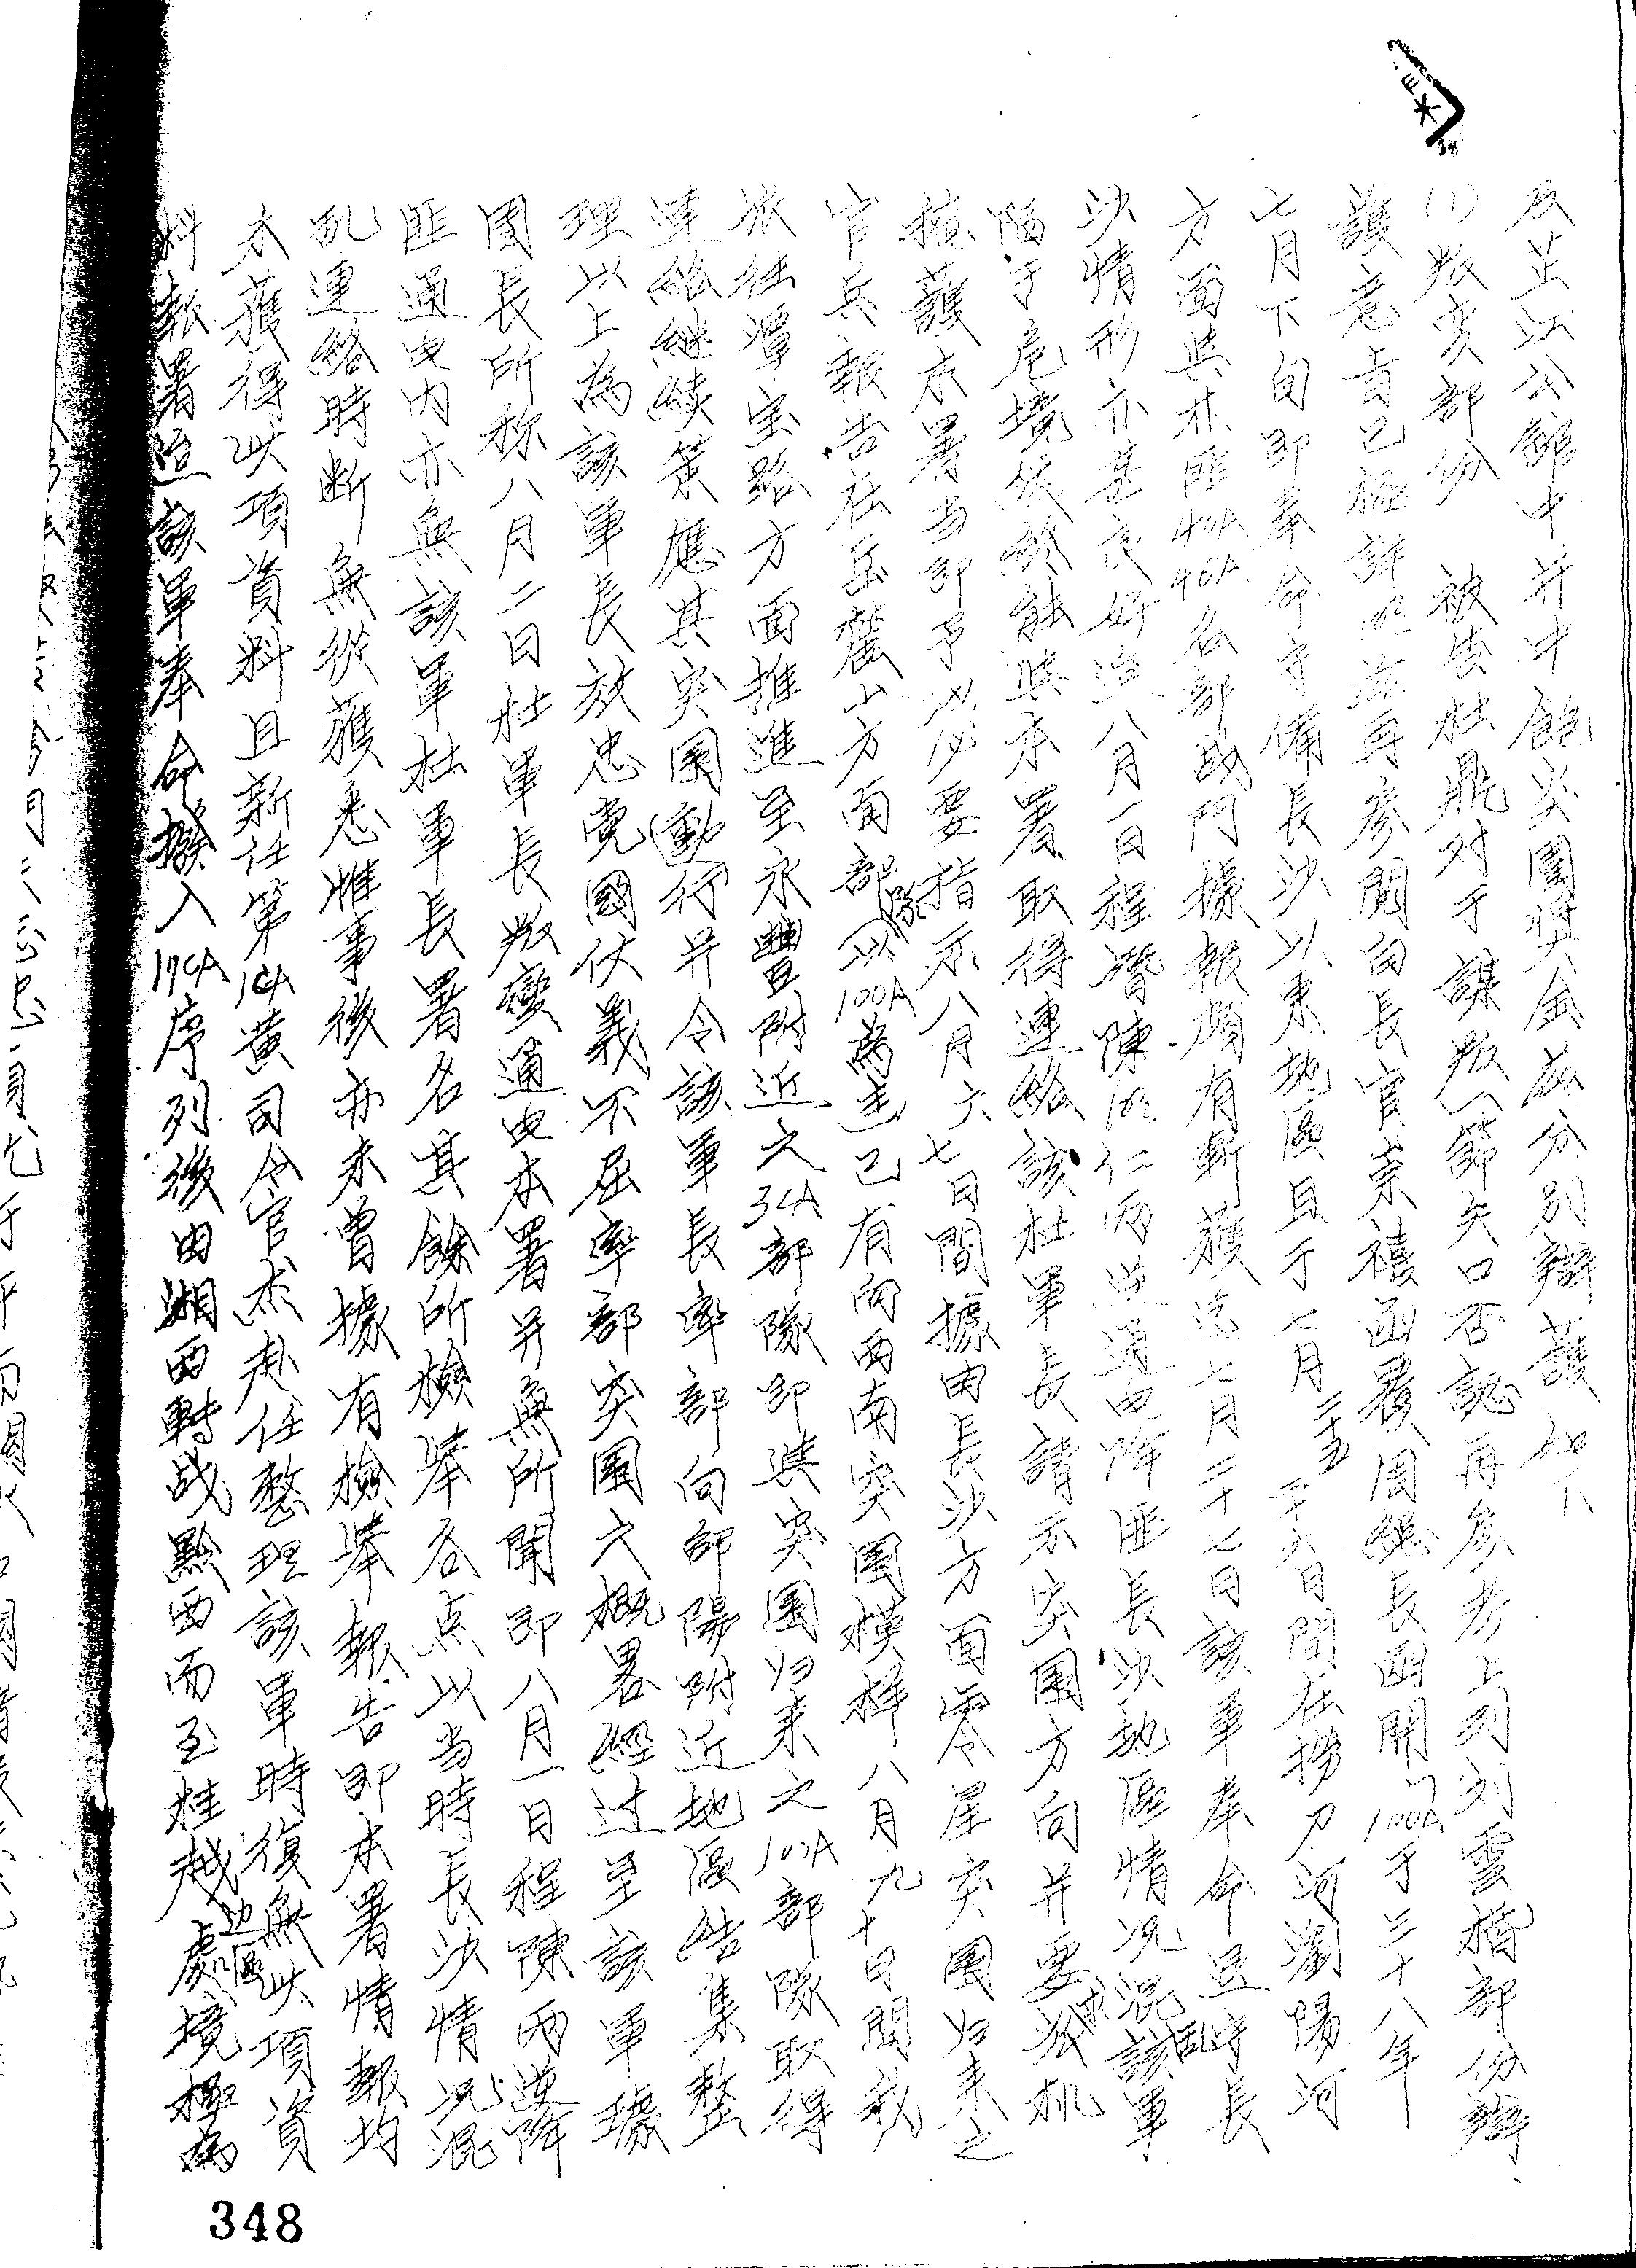 及芷江公館中并中飽突圍獎金各分別辯護如下
(1)叛变部份 被告杜鼎对于謀叛一節矢口否認再參考上列列雲楷部份辯
護意旨已極詳明茲再參閱白長官崇禧函覆周總長函開「100A于三十八年
七月下旬即奉命守備長沙以東地區且于七月二十五二十六日間在撈刀河瀏陽河
方面與朩匪40A46A各部战鬥據報頗有斬獲迄七月二十七日該軍奉命退守長
沙情形亦甚良好迨八月一日程潛陳明仁兩逆通电降匪長沙地區情况混乱該軍
陷于危境依然能與本署取得連絡該杜軍長請示突圍方向并要求派机
掩護本署当即予以必要指示八月六七日間據由長沙方面零星突圍归来之
官兵報告在岳麓山方面部隊以100A為主已有向西南突圍模样八月九十日間我
派在潭宝路方面推進至永豐附近之36A部隊即與突圍归来之100A部隊取得
連絡继续策應其突圍動行并令該軍長率部向邵陽附近地區結集整
理以上為該軍長效忠党國仗義不屈率部突圍大概畧經过至該軍據
團長所称八月二日杜軍長叛變通电本署并無所聞即八月一日程陳兩逆降
匪通电内亦無該軍杜軍長署名其餘所檢舉各点以当時長沙情况混
乱連絡時断無從獲悉惟事後亦未曾據有檢舉報告即本署情報均
未獲得此項資料且新任第1CA黄司令官杰赴任整理該軍時復無此項資
料報署迨該軍奉命撥入17CA序列後由湘西轉战黔西而至桂越边區處境極為
348